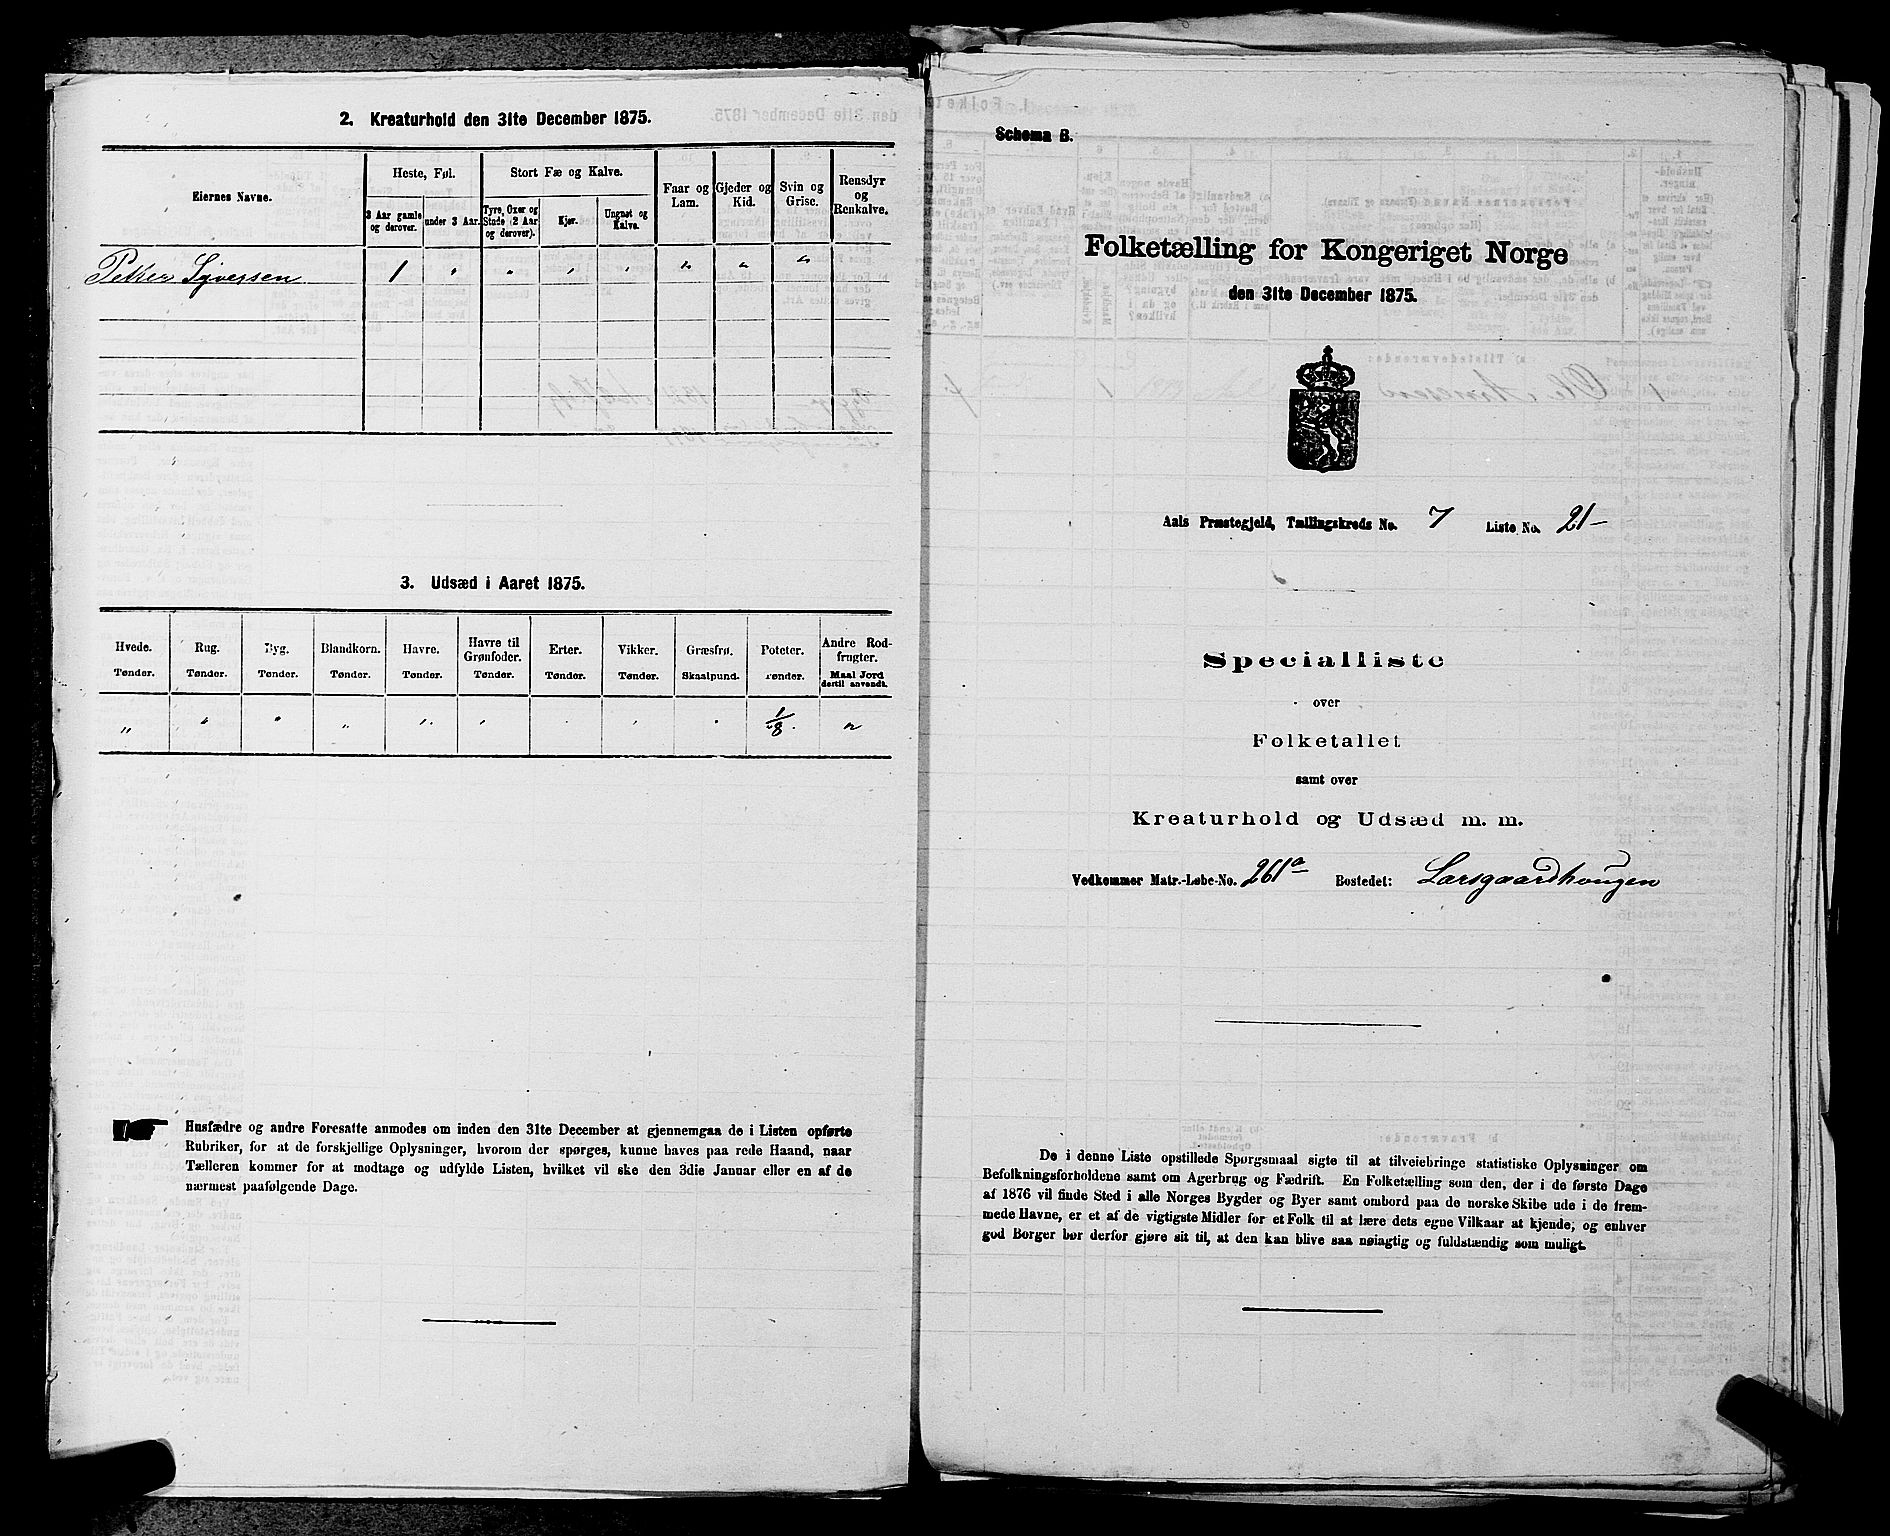 2. Kreaturhold den 31te December 1875.
Eiernes Navne.
Heste, Føl.
Stort Fæ og Kalve.
Faar og Lam.
Gjeder og Kid.
Svin og Grise.
Rensdyr og Renkalve.
3 Aar gamle og derover.
under 3 Aar.
Tyre, Oxer og Stude (2 Aar og derover).
Kjør.
Ungnøt og Kalve.
Petter Syversen 1 " " " " " " "
3. Udsæd i Aaret 1875.
Hvede. Rug. Byg. Blandkorn. Havre. Havre til Grønfoder. Erter. Vikker. Græsfrø. Poteter. Andre Rodfrugter.
Tønder. Tønder. Tønder. Tønder. Tønder. Tønder. Tønder. Tønder. Skaalpund. Tønder. Maal Jord dertil anvendt.
" " " " " " " " " 1/8. "
Husfædre og andre Foresatte anmodes om inden den 31te December at gjennemgaa de i Listen opførte
Rubriker, for at de forskjellige Oplysninger, hvorom der spørges, kunne haves paa rede Haand, naar
Tælleren kommer for at modtage og udfylde Listen, hvilket vil ske den 3die Januar eller en af de
nærmest paafølgende Dage.
Schema B.
Folketælling for Kongeriget Norge
den 31te December 1875.
Aals Præstegjeld, Tællingskreds No. 7 Liste No. 21-
Specialliste
over
Folketallet
samt over
Kreaturhold og Udsæd m. m.
Vedkommer Matr.-Løbe-No. 261a Bostedet: Larsgaardhougen
De i denne Liste opstillede Spørgsmaal sigte til at tilveiebringe statistiske Oplysninger om
Befolkningsforholdene samt om Agerbrug og Fædrift. En Folketælling som den, der i de første Dage
af 1876 vil finde Sted i alle Norges Bygder og Byer samt ombord paa de norske Skibe ude i de frem-
mede Havne, er et af de vigtigste Midler for et Folk til at lære dets egne Vilkaar at kjende, og enhver
god Borger bør derfor gjøre sit til, at den kan blive saa nøiagtig og fuldstændig som muligt.